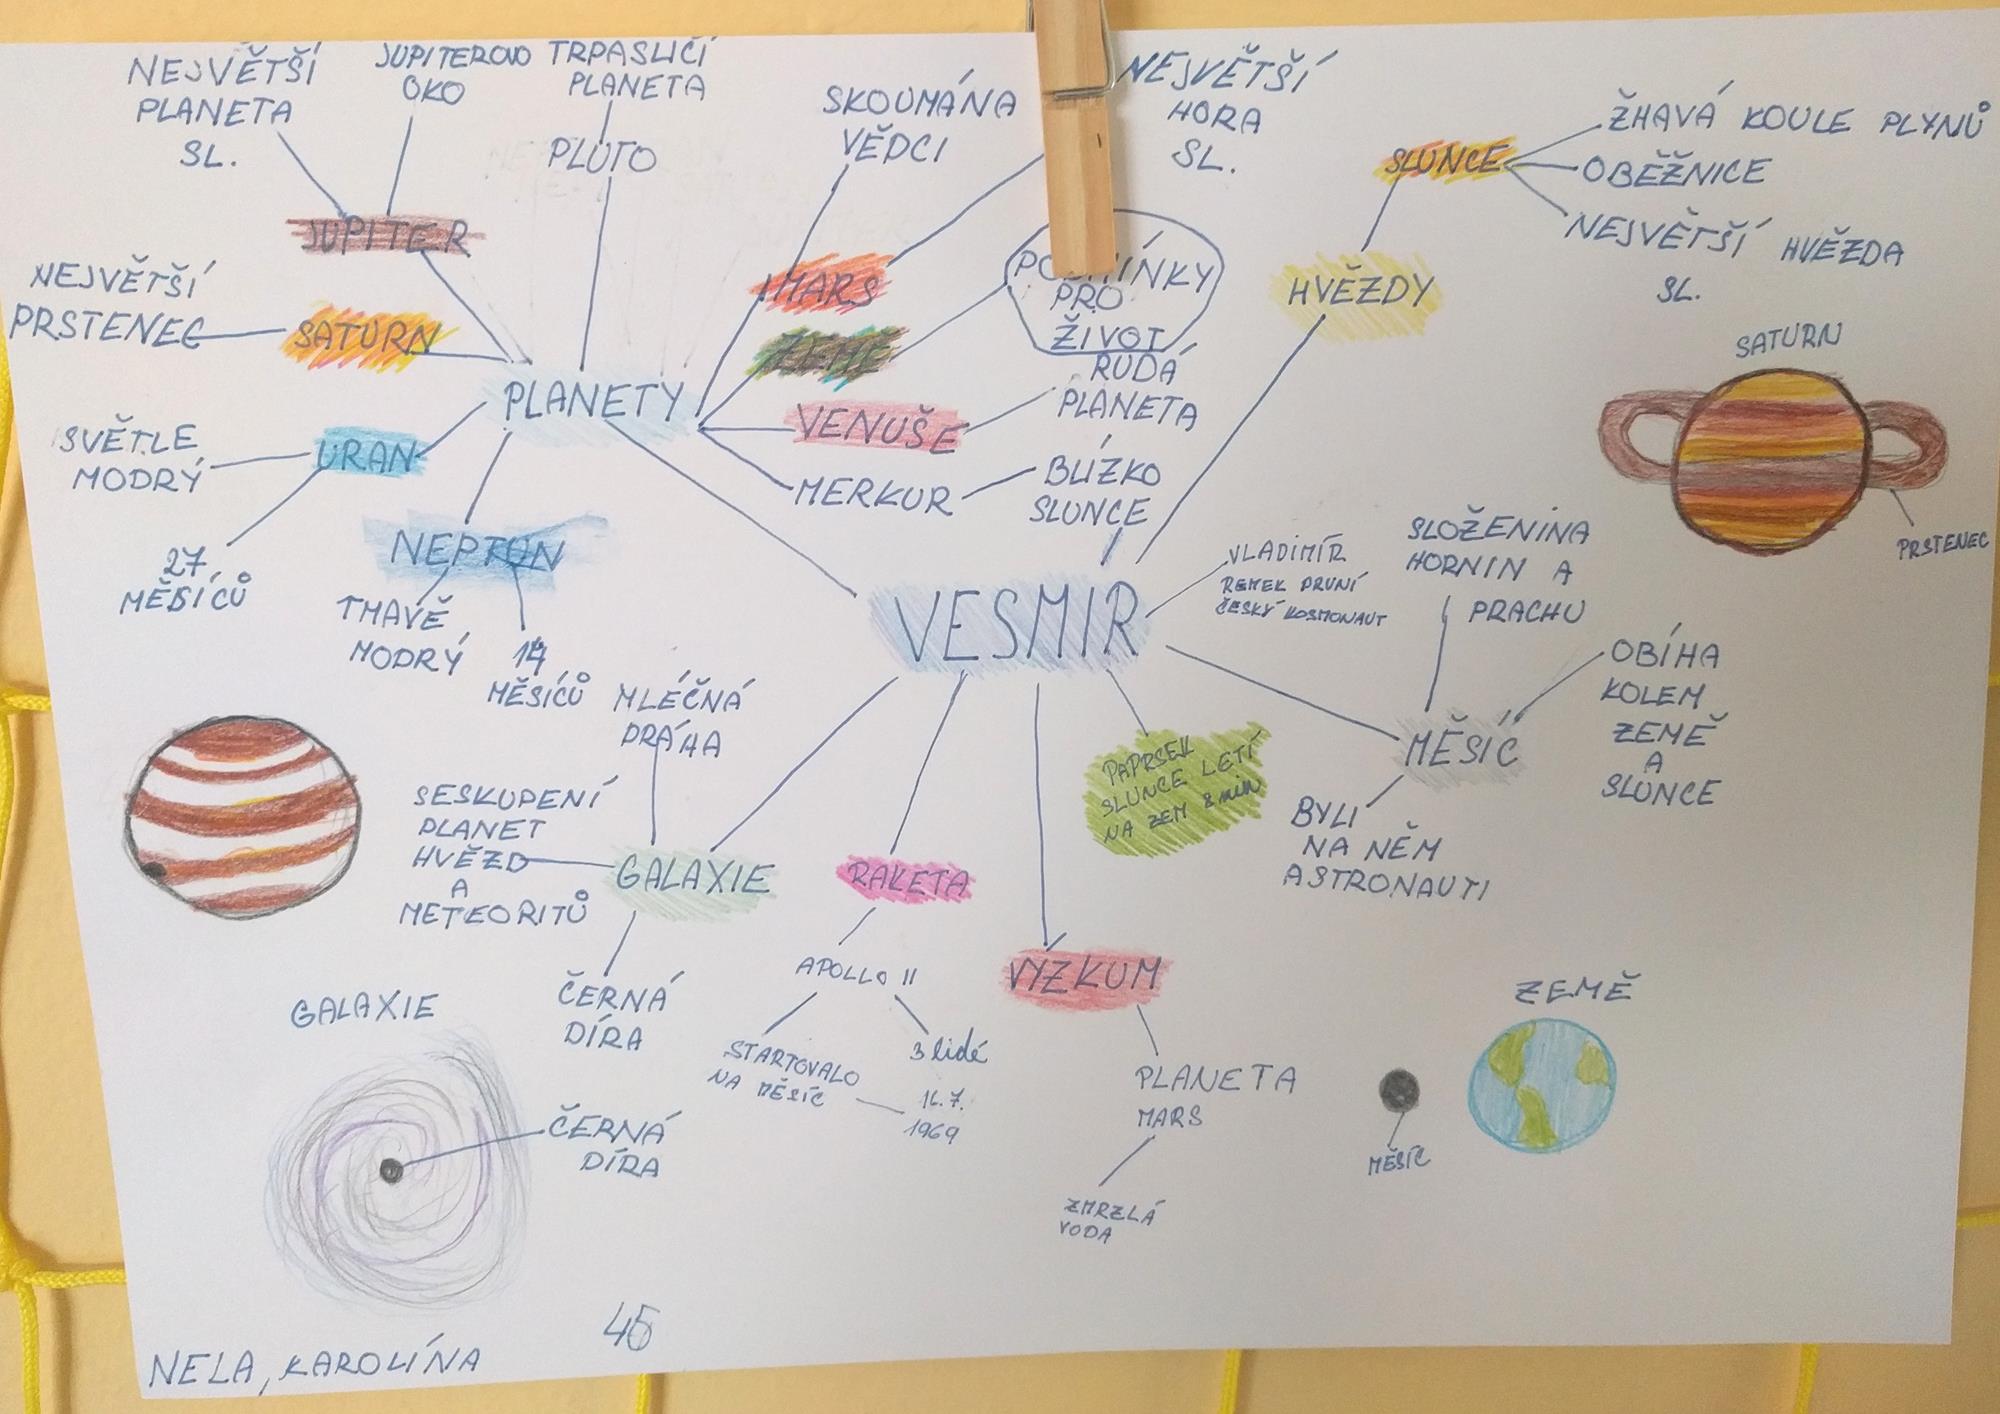 NEJVĚTŠÍ
PLANETA
SL.
JUPITEROVO
OKO
TRPASLIČÍ
PLANETA
PLUTO
SKOUMÁNA
VĚDCI
NEJVĚTŠÍ
HORA
SL.
SLUNCE
ŽHAVÁ KOULE PLYNŮ
OBĚŽNICE
NEJVĚTŠÍ HVĚZDA
SL.
JUPITER
NEJVĚTŠÍ
PRSTENEC
SATURN
MARS
ZEMĚ
PODMÍNKY
PRO
ŽIVOT
HVĚZDY
PLANETY
VENUŠE
RUDÁ
PLANETA
MERKUR
BLÍZKO
SLUNCE
SVĚTLE
MODRÝ
URAN
27
MĚSÍCŮ
NEPTUN
TMAVĚ
MODRÝ
14
MĚSÍCŮ
SATURN
PRSTENEC
VESMIR
VLADIMÍR
REMEK PRVNÍ
ČESKÝ KOSMONAUT
SLOŽENINA
HORNIN A
PRACHU
OBÍHA
KOLEM
ZEMĚ
A
SLUNCE
MĚSÍC
BYLI
NA NĚM
ASTRONAUTI
PAPRSEK
SLUNCE LETÍ
NA ZEM 8 min
MLÉČNÁ
DRÁHA
SESKUPENÍ
PLANET
HVĚZD
A
METEORITŮ
GALAXIE
ČERNÁ
DÍRA
RAKETA
APOLLO 11
STARTOVALO
NA MĚSÍC
3 lidé
16.7.
1969
VYZKUM
PLANETA
MARS
ZMRZLÁ
VODA
ZEMĚ
MĚSÍC
GALAXIE
ČERNÁ
DÍRA
45
NELA, KAROLÍNA